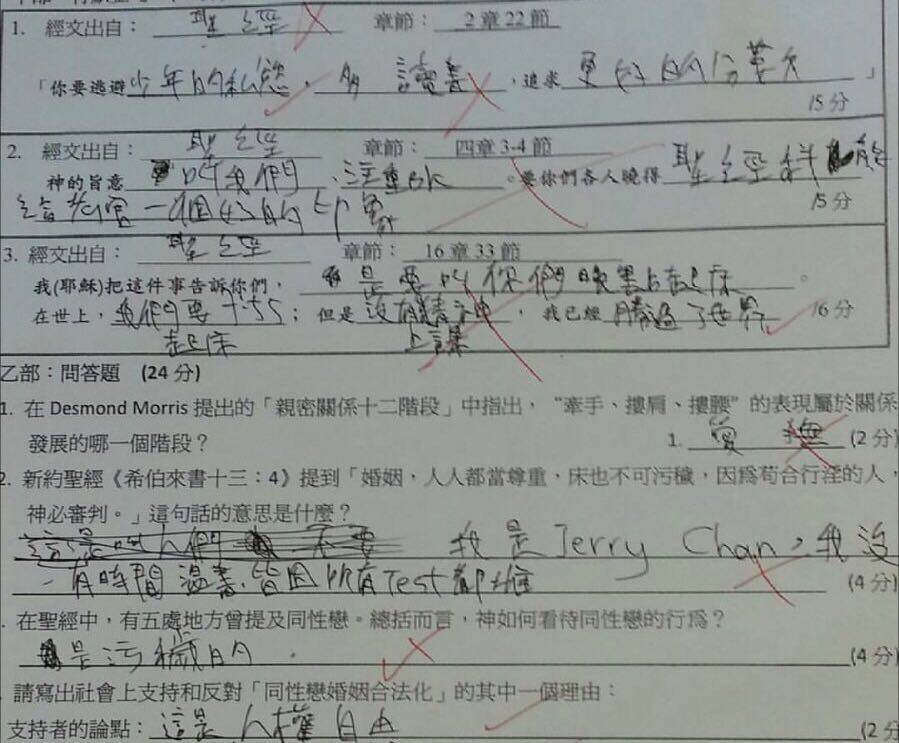 1. 經文出自： 聖經 章節： 2章22節
「你要逃避少年的私慾，多 讀書，追求 更好的
」
15分
2. 經文出自： 聖經 章節： 四章3-4節
神的旨意 叫我們，注重 。要你們各人曉得 聖經科 能
給 一個好的印象
15分
3. 經文出自： 聖經 章節： 16章33節
我(耶穌)把這件事告訴你們， 是要叫你們晚點起床。
在世上，我們要 7:55；但是 沒有精神，我已經 勝過了世界 16分
起床 上課
乙部：問答題 (24分)
1. 在 Desmond Morris 提出的「親密關係十二階段」中指出，“牽手、摟肩、摟腰”的表現屬於關係
發展的哪一個階段？ 1. 愛撫 (2分)
2. 新約聖經《希伯來書十三：4》提到「婚姻，人人都當尊重，床也不可污穢，因為苟合行淫的人，
神必審判。」這句話的意思是什麼？
我是Jerry Chan，我沒
有時間溫書，皆因所有Test都堆 (4分)
. 在聖經中，有五處地方曾提及同性戀。總括而言，神如何看待同性戀的行為？
是污穢的. (4分)
. 請寫出社會上支持和反對「同性戀婚姻合法化」的其中一個理由：
支持者的論點：這是人權自由 (2分